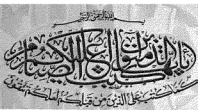 بسم الله الرحمن الرحيم
يا أيها الذين آمنوا كتب عليكم الصيام
كما كتب على الذين من قبلكم لعلكم تتقون